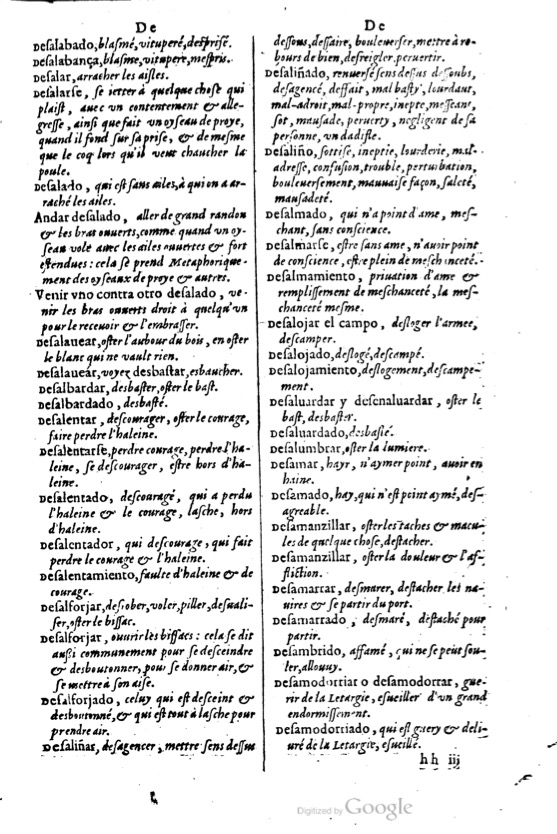 De
Desalabado, blasmé, vituperé, desprisé.
Desalabança, blasme, vitupere, mespris.
Desalar, arracher les aisles.
Desalarse, se ietter à quelque chose qui
plaist, auec vn contentement & alle-
gresse, ainsi que fait vn oyseau de proye,
quand il fond sur sa prise, & de mesme
que le coq lors qu'il veut chaucher la
poule.
Desalado, qui est sans ailes, à qui on a ar-
raché les ailes.
Andar desalado, aller de grand randon
& les bras ouuerts, comme quand vn oy-
seau vole auec les ailes ouuertes & fort
estendues: cela se prend Metaphorique-
ment des oyseaux de proye & autres.
Venir vno contra otro desalado, ve-
nir les bras ouuerts droit à quelqu'vn
pour le receuoir & l'embrasser.
Desalauear, oster l'aubour du bois, en oster
le blanc qui ne vault rien.
Desalauear, voyez desbastar, esbaucher.
Desalbardar, desbaster, oster le bast.
Desalbardado, desbasté.
Desalentar, descourager, oster le courage,
faire perdre l'haleine.
Desalentarse, perdre courage, perdre l'ha-
leine, se descourager, estre hors d'ha-
leine.
Desalentado, descouragé, qui a perdu
l'haleine & le courage, lasche, hors
d'haleine.
Desalentador, qui descourage, qui fait
perdre le courage & l'haleine.
Desalentamiento, faulte d'haleine & de
courage.
Desalforjar, desrober, voler, piller, desuali-
ser, oster le bissac.
Desalforjar, ouurir les bissacs: cela se dit
aussi communement pour se desceindre
& desboutonner, pour se donner air, &
se mettre à son aise.
Desalforjado, celuy qui est desceint &
desboutonné, & qui est tout à lasche pour
prendre air.
Desaliñar, desagencer, mettre sens dessus
De
dessous, deffaire, bouleuerser, mettre à re-
bours de bien, desreigler, peruertir.
Desaliñado, renuersé sens dessus dessoubs,
desagencé, deffait, mal basty, lourdaut,
mal-adroit, mal-propre, inepte, messeant,
sot, mausade, peruerty, negligent de sa
personne, vn dadiste.
Desaliño, sottise, ineptie, lourderie, mal-
adresse, confusion, trouble, perturbation,
bouleuersement, mauuaise façon, saleté,
mausadeté.
Desalmado, qui n'a point d'ame, mes-
chant, sans conscience.
Desalmarse, estre sans ame, n'auoir point
de conscience, estre plein de meschanceté.
Desalmamiento, priuation d'ame &
remplissement de meschanceté, la mes-
chanceté mesme.
Desalojar el campo, desloger l'armee,
descamper.
Desalojado, deslogé, descampé.
Desalojamiento, deslogement, descampe-
ment.
Desaluardar y desenaluardar, oster le
bast, desbaster.
Desaluardado, desbasté.
Desalumbrar, oster la lumiere.
Desamar, hayr, n'aymer point, auoir en
haine.
Desamado, hay, qui n'est point aymé, des-
agreable.
Desamanzillar, oster les taches & macu-
les de quelque chose, destacher.
Desamanzillar, oster la douleur & l'af-
fliction.
Desamarrar, desmarer, destacher les na-
uires & se partir du port.
Desamarrado, desmaré, destaché pour
partir.
Desambrido, affamé, qui ne se peut sou-
ler, allouuy.
Desamodorriar o desamodorrar, gue-
rir de la Letargie, esueiller d'vn grand
endormissement.
Desamodorriado, qui est guery & deli-
uré de la Letargie, esueillé.
hh iij
Digitized by Google